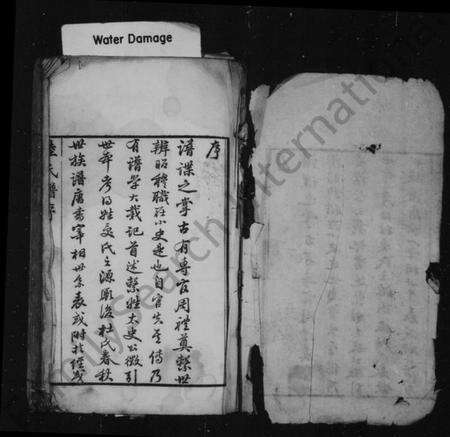 Water Damage
序
譜諜之掌古有專官周禮奠繫世
辨昭穆職在小史尚也自官失其傳乃
有譜學大戴記首述繫姓太史公徵引
世本考得姓受氏之源厥後杜氏春秋
世族譜唐書宰相世系表或附於經或
氏譜序
FamilySearch International